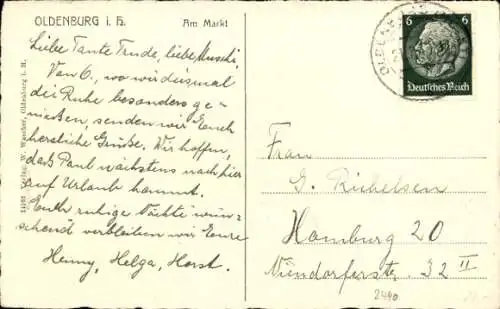 OLDENBURG i. H. Am Markt
Liebe Tante Trude, liebe Muschi,
Von O., wo wir diesmal
die Ruhe besonders ge-
nießen, senden wir Euch
herzliche Grüße. Wir hoffen,
daß Paul nächstens nach hier
auf Urlaub kommt.
Euch ruhige Nächte wün-
schend verbleiben wir Eure
Henny, Helga, Horst.
Verlag: W. Oldenburg i. H.
6 6
Deutsches Reich
Frau
G. Richelsen
Hamburg 20
32 II
2440